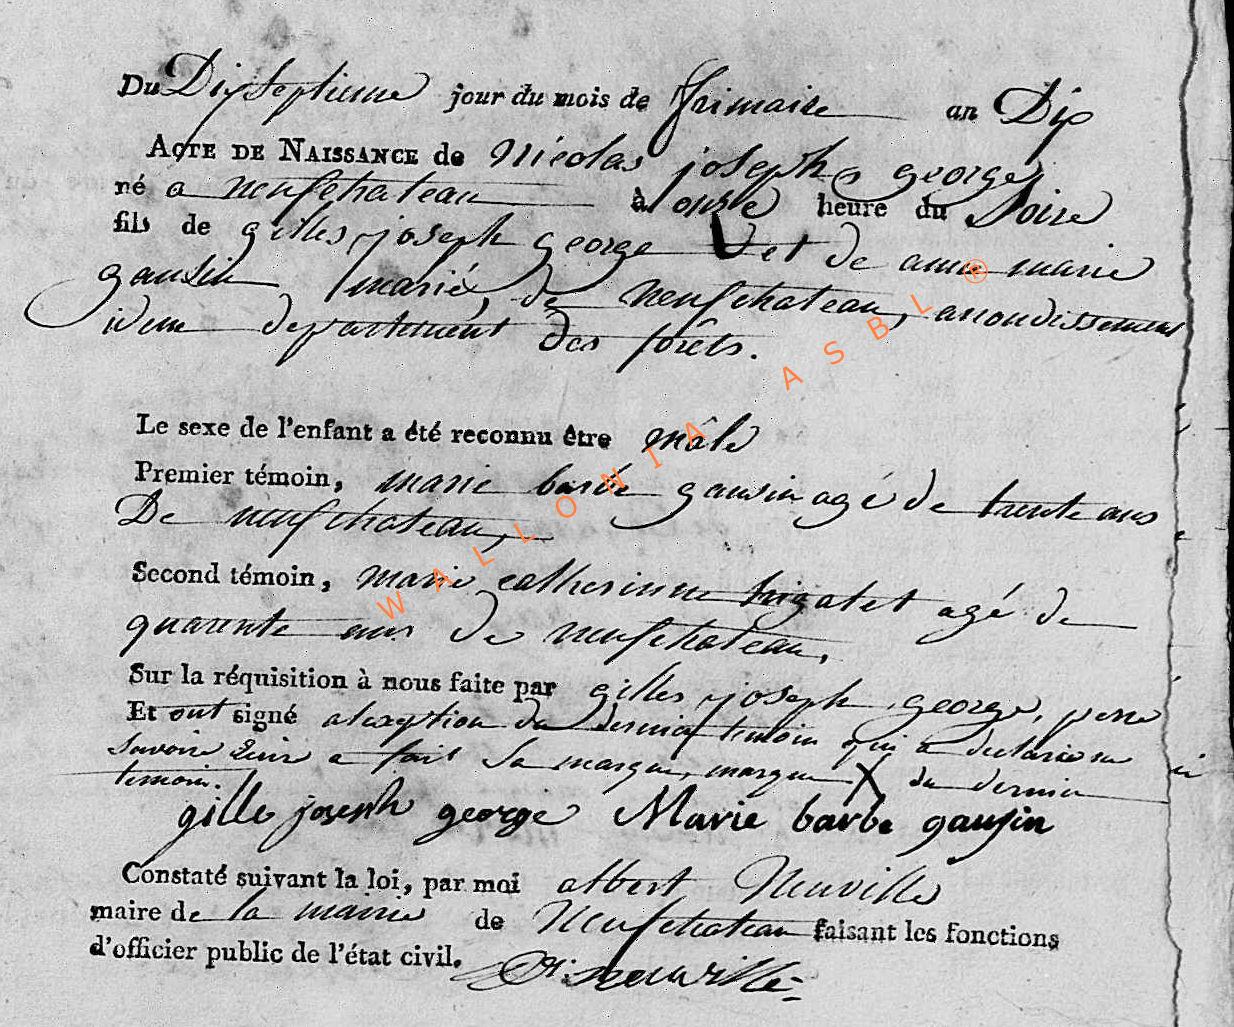 Du Dixseptieme jour du mois de frimaire an Dix
ACTE DE NAISSANCE de Nicolas joseph george
né a neufchateau à onze heure du Soire
fils de gilles joseph george et de anne marie
gausin marié, de neufchateau, arrondissement
idem departement des forêts.
Le sexe de l'enfant a été reconnu être mâle
Premier témoin, marie barbe gausin agé de trente ans
De neufchateau,
Second témoin, marie catherinne trigatet agé de
quarente ans de neufchateau,
Sur la réquisition à nous faite par gilles joseph george, perre
Et ont signé a lexeption du dernier temoin qui a declarée ne
savoire a fait sa marque, marque X du dernier
temoin.
gille joseph george Marie barbe gausin
Constaté suivant la loi, par moi albert Neuville
maire de la mairie de Neufchateau faisant les fonctions
d'officier public de l'état civil. neuville
WALLONIA ASBL ®